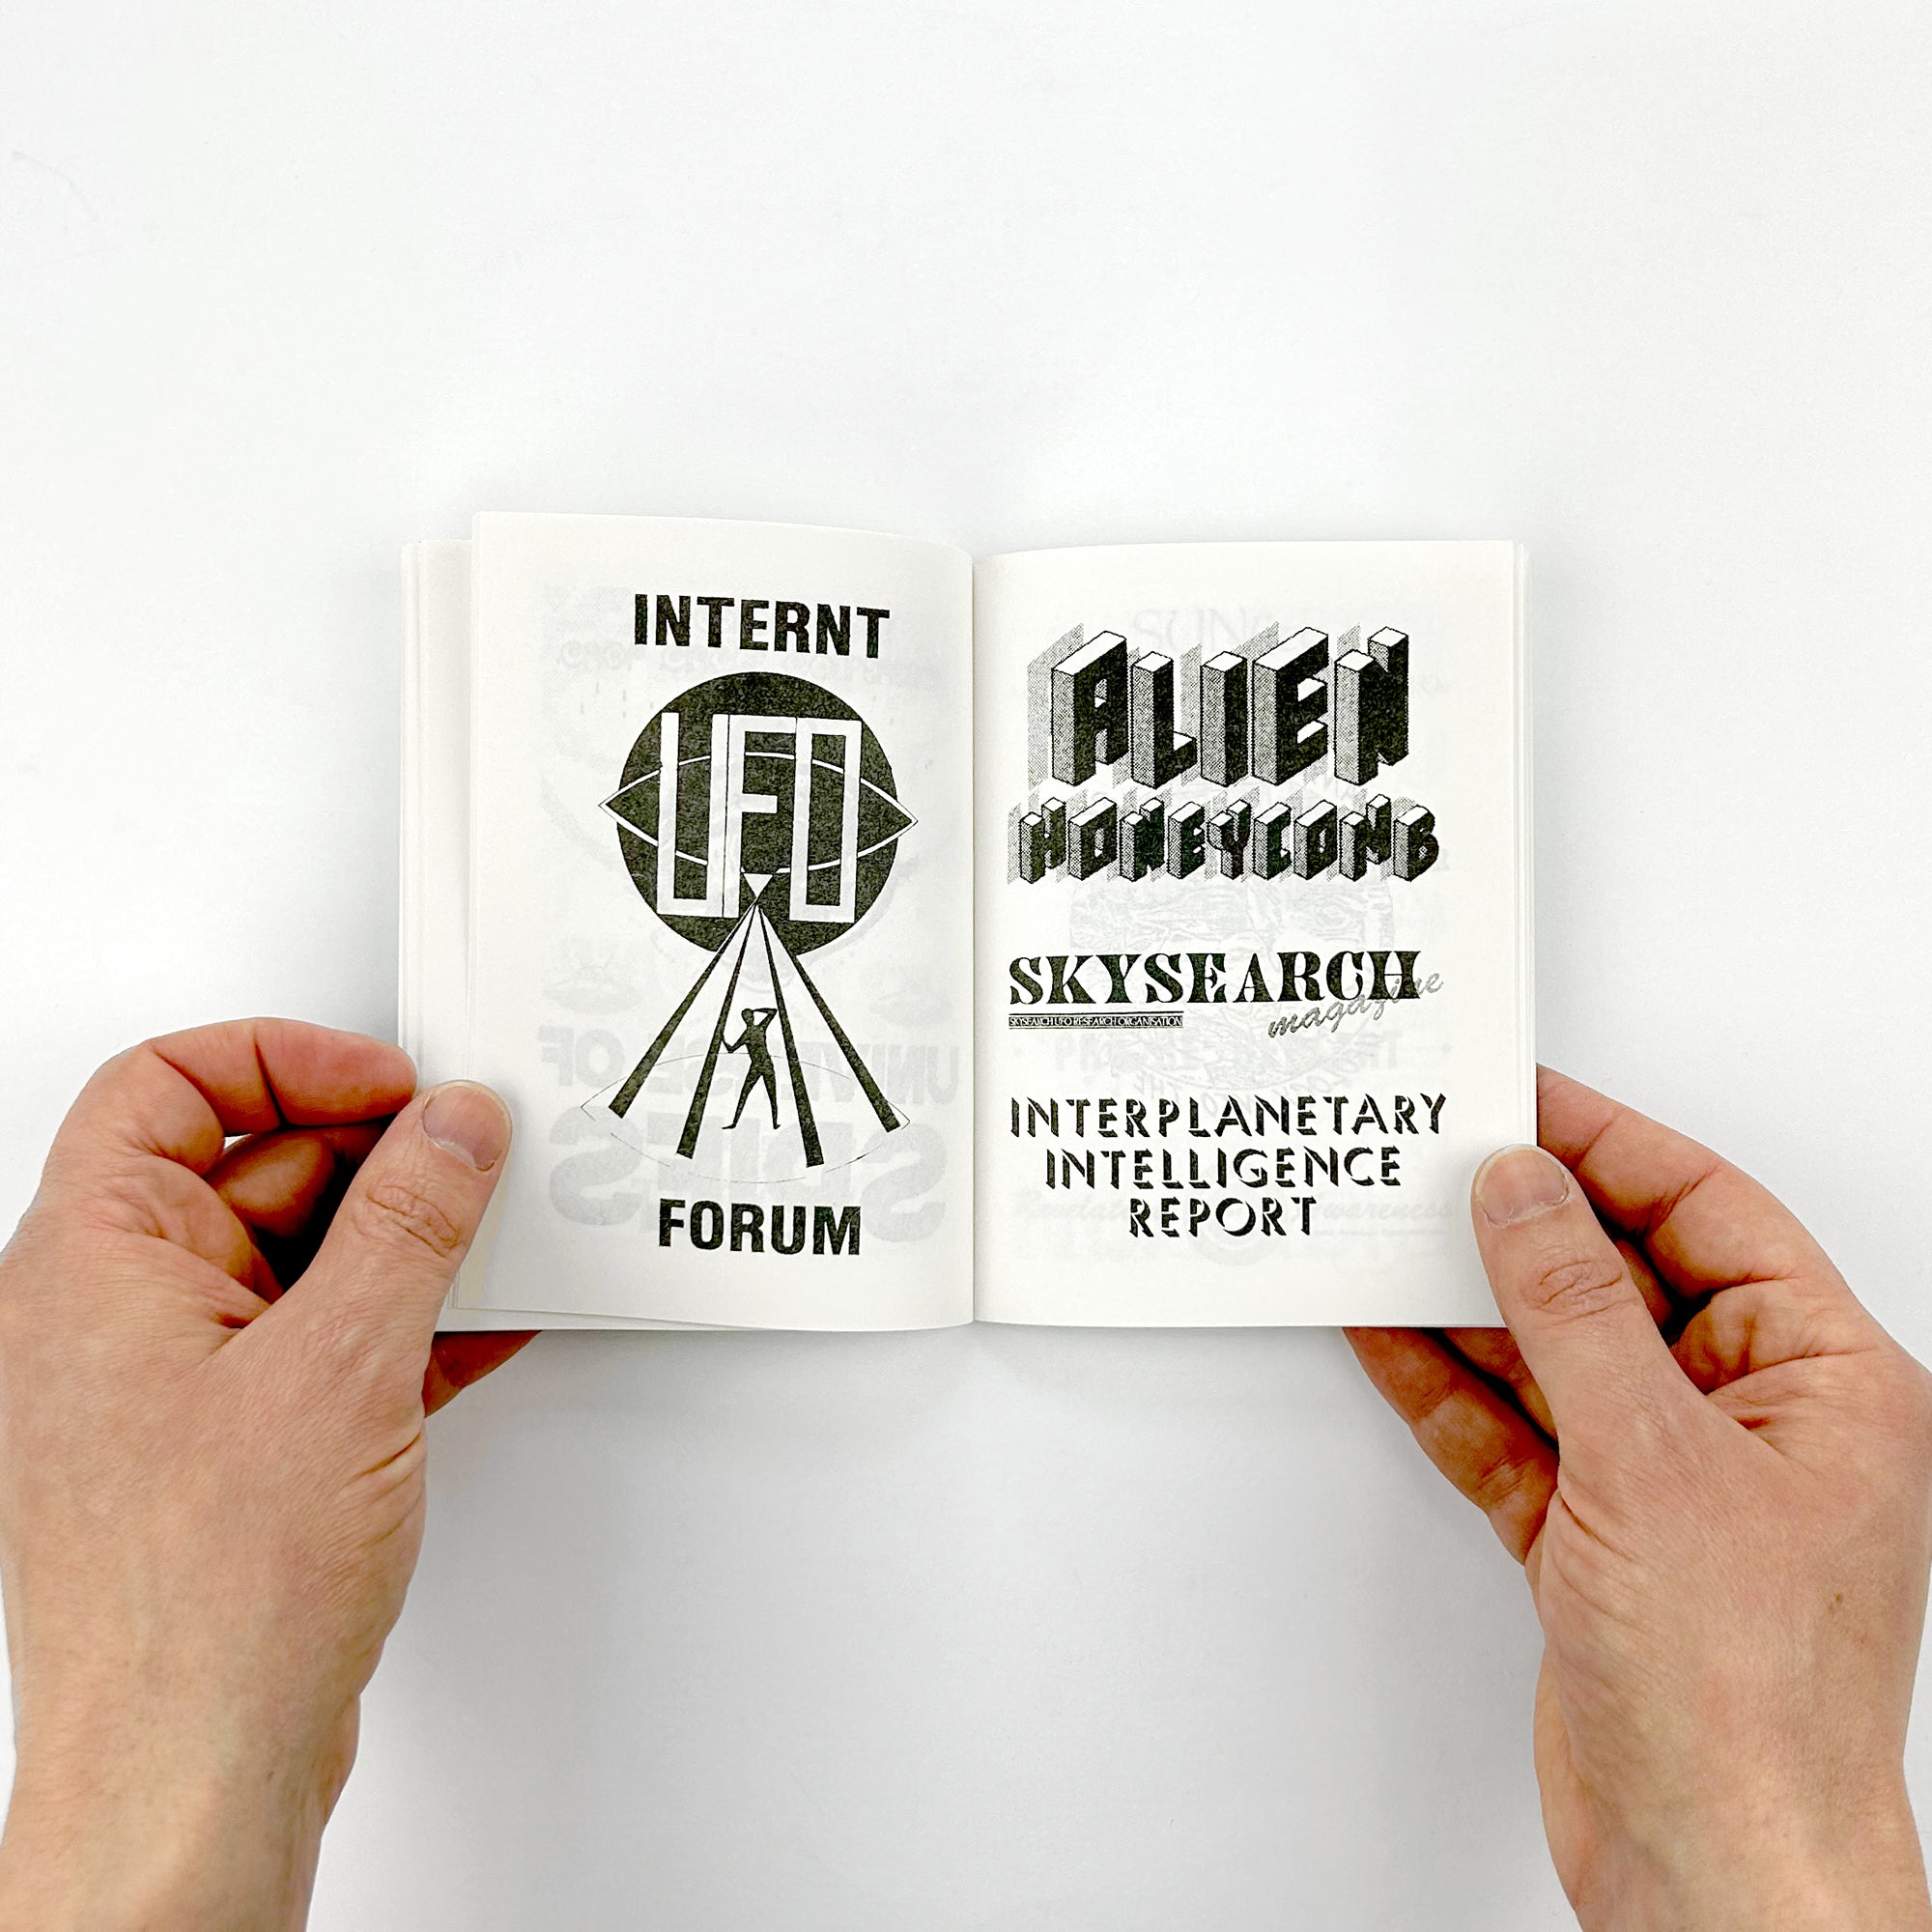 INTERNT
UFO
FORUM
ALIEN
HONEYCOMB
SKYSEARCH
magazine
SKYSEARCH UFO RESEARCH ORGANISATION
INTERPLANETARY
INTELLIGENCE
REPORT